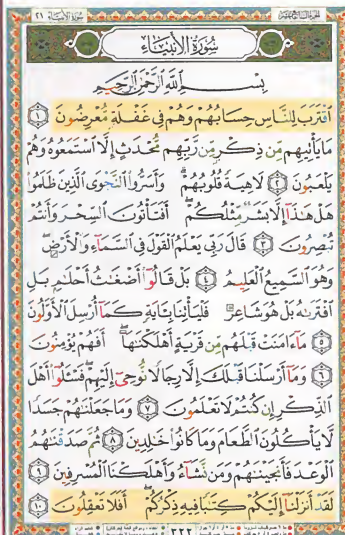 سُورَةُ الأنبياء ٢١
سُورَةُ الأَنبِيَاءِ
بِسْمِ اللَّهِ الرَّحْمَٰنِ الرَّحِيمِ
ٱقْتَرَبَ لِلنَّاسِ حِسَابُهُمْ وَهُمْ فِى غَفْلَةٍ مُّعْرِضُونَ ١
مَا يَأْتِيهِم مِّن ذِكْرٍ مِّن رَّبِّهِم مُّحْدَثٍ إِلَّا ٱسْتَمَعُوهُ وَهُمْ
يَلْعَبُونَ ٢ لَاهِيَةً قُلُوبُهُمْ ۗ وَأَسَرُّوا۟ ٱلنَّجْوَى ٱلَّذِينَ ظَلَمُوا۟
هَلْ هَٰذَآ إِلَّا بَشَرٌ مِّثْلُكُمْ ۖ أَفَتَأْتُونَ ٱلسِّحْرَ وَأَنتُمْ
تُبْصِرُونَ ٣ قَالَ رَبِّى يَعْلَمُ ٱلْقَوْلَ فِى ٱلسَّمَآءِ وَٱلْأَرْضِ ۖ
وَهُوَ ٱلسَّمِيعُ ٱلْعَلِيمُ ٤ بَلْ قَالُوٓا۟ أَضْغَٰثُ أَحْلَٰمٍۭ بَلِ
ٱفْتَرَىٰهُ بَلْ هُوَ شَاعِرٌ فَلْيَأْتِنَا بِـَٔايَةٍ كَمَآ أُرْسِلَ ٱلْأَوَّلُونَ
٥ مَآ ءَامَنَتْ قَبْلَهُم مِّن قَرْيَةٍ أَهْلَكْنَٰهَآ ۖ أَفَهُمْ يُؤْمِنُونَ
٦ وَمَآ أَرْسَلْنَا قَبْلَكَ إِلَّا رِجَالًا نُّوحِىٓ إِلَيْهِمْ ۖ فَسْـَٔلُوٓا۟ أَهْلَ
ٱلذِّكْرِ إِن كُنتُمْ لَا تَعْلَمُونَ ٧ وَمَا جَعَلْنَٰهُمْ جَسَدًا
لَّا يَأْكُلُونَ ٱلطَّعَامَ وَمَا كَانُوا۟ خَٰلِدِينَ ٨ ثُمَّ صَدَقْنَٰهُمُ
ٱلْوَعْدَ فَأَنجَيْنَٰهُمْ وَمَن نَّشَآءُ وَأَهْلَكْنَا ٱلْمُسْرِفِينَ ٩
لَقَدْ أَنزَلْنَآ إِلَيْكُمْ كِتَٰبًا فِيهِ ذِكْرُكُمْ ۖ أَفَلَا تَعْقِلُونَ ١٠
٣٢٢